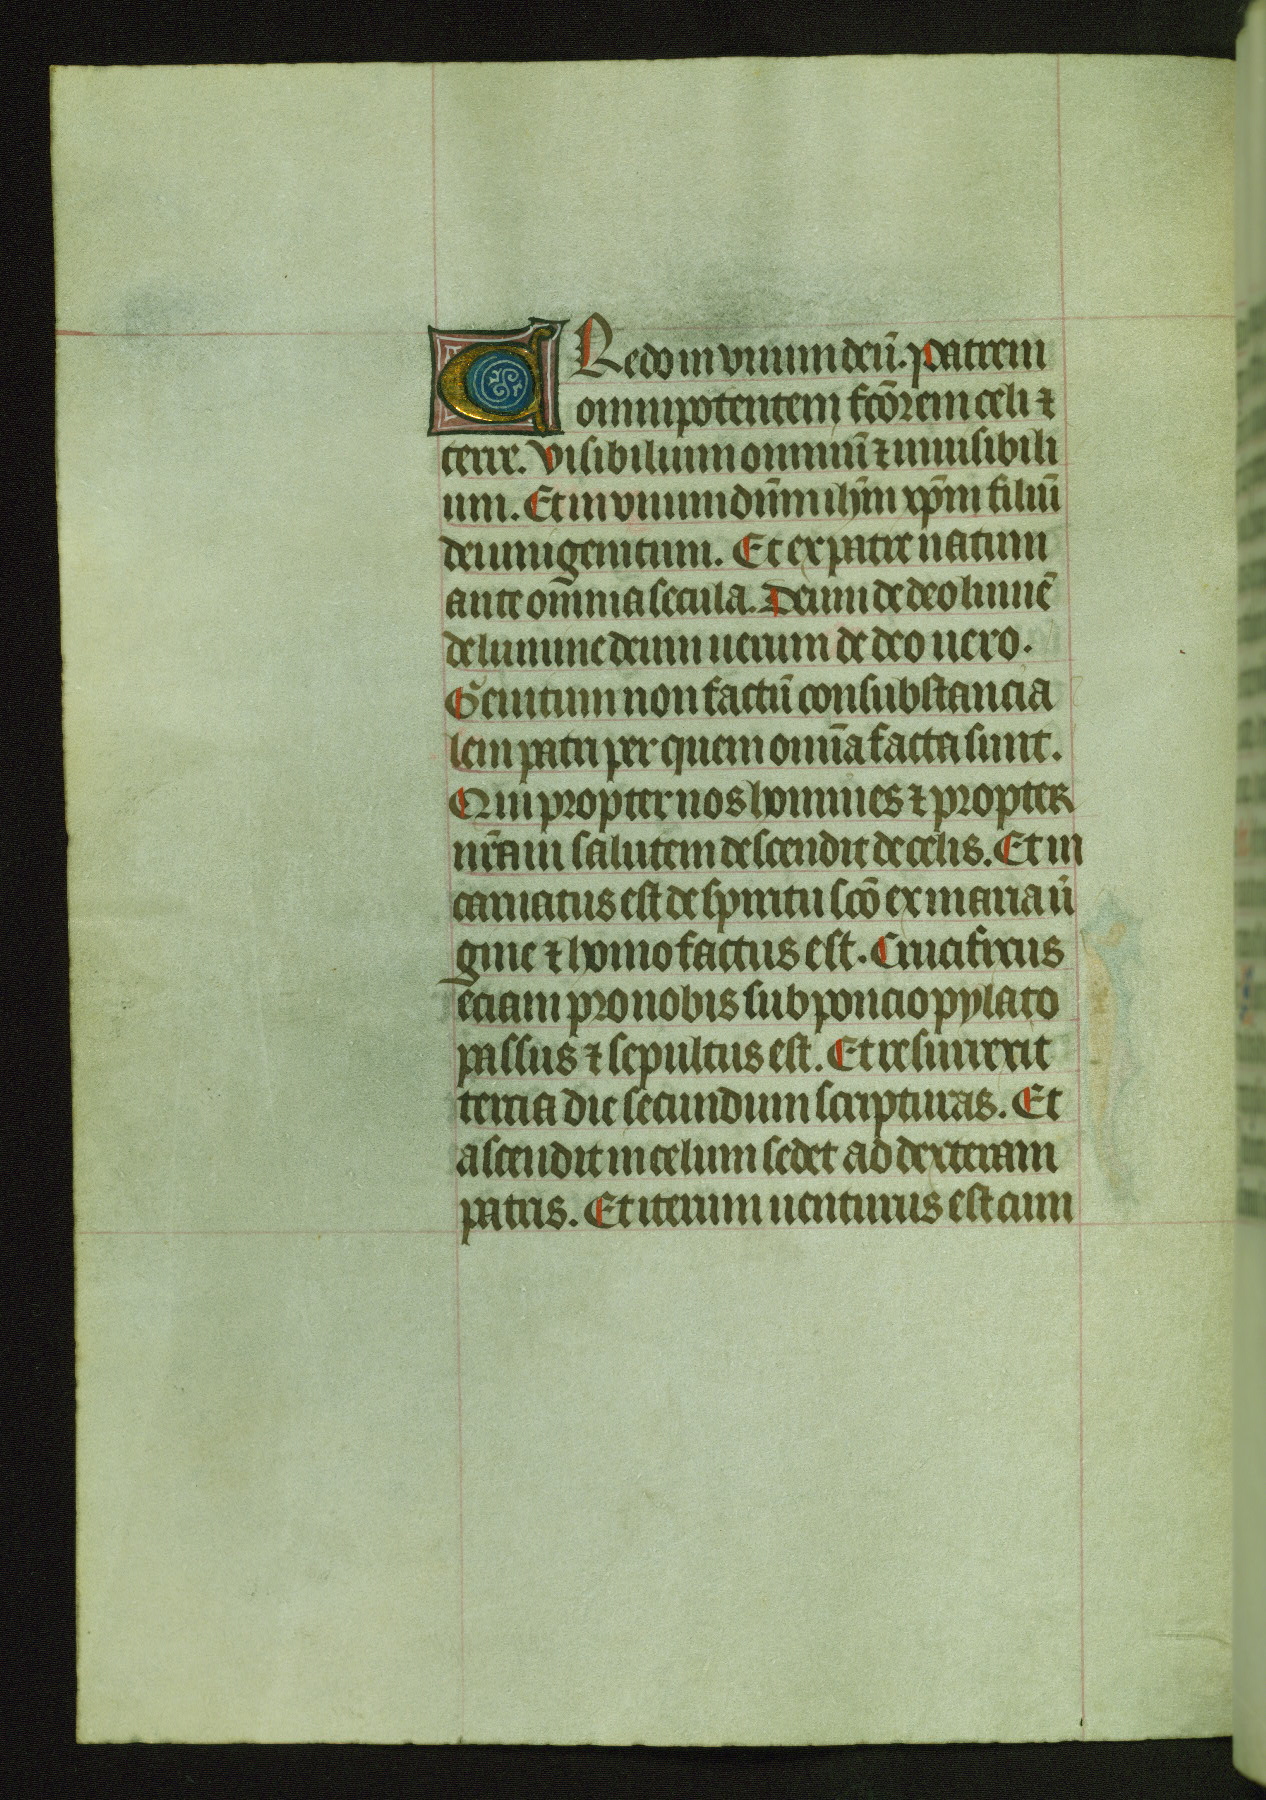 CRedo in vnum deū. patrem
omnipotentem fcōrem celi ⁊
terre. Visibilium omniū ⁊ inuisibili
um. Et in vnum dn̄m ihm̄ xp̄m filiū
dei unigenitum. Et ex patre natum
ante om̄ia secula. Deum de deo lumē
de lumine deum uerum de deo uero.
Genitum non factū consubstancia
lem patri per quem omīa facta sunt.
Qui propter nos homines ⁊ propter
nr̄am salutem descendit de celis. Et in
carnatus est de spiritu scō ex maria ū
gine ⁊ homo factus est. Crucifixus
eciam pro nobis sub poncio pylato
passus ⁊ sepultus est. Et resurrexit
tercia die secundum scripturas. Et
ascendit in celum sedet ad dexteram
patris. Et iterum uenturus est cum